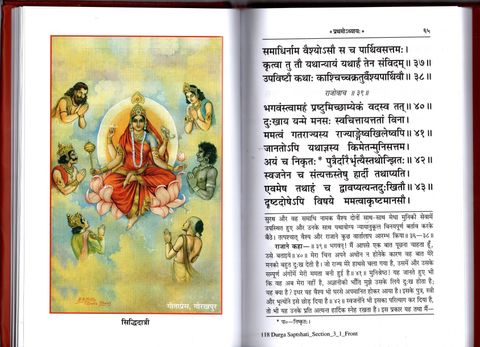 गीताप्रेस, गोरखपुर
सिद्धिदात्री
* प्रथमोऽध्यायः *
६५
समाधिर्नाम वैश्योऽसौ स च पार्थिवसत्तमः।
कृत्वा तु तौ यथान्यायं यथार्हं तेन संविदम्॥ ३७॥
उपविष्टौ कथाः काश्चिच्चक्रतुर्वैश्यपार्थिवौ॥ ३८॥
राजोवाच॥ ३९॥
भगवंस्त्वामहं प्रष्टुमिच्छाम्येकं वदस्व तत्॥ ४०॥
दुःखाय यन्मे मनसः स्वचित्तायत्ततां विना।
ममत्वं गतराज्यस्य राज्याङ्गेष्वखिलेष्वपि॥ ४१॥
जानतोऽपि यथाज्ञस्य किमेतन्मुनिसत्तम।
अयं च निकृतः* पुत्रैर्दारैर्भृत्यैस्तथोज्झितः॥ ४२॥
स्वजनेन च संत्यक्तस्तेषु हार्दी तथाप्यति।
एवमेष तथाहं च द्वावप्यत्यन्तदुःखितौ॥ ४३॥
दृष्टदोषेऽपि विषये ममत्वाकृष्टमानसौ।
सुरथ और वह समाधि नामक वैश्य दोनों साथ-साथ मेधा मुनिकी सेवामें
उपस्थित हुए और उनके साथ यथायोग्य न्यायानुकूल विनयपूर्ण बर्ताव करके
बैठे। तत्पश्चात् वैश्य और राजाने कुछ वार्तालाप आरम्भ किया॥ ३६—३८॥
राजाने कहा—॥ ३९॥ भगवन्! मैं आपसे एक बात पूछना चाहता हूँ,
उसे बताइये॥ ४०॥ मेरा चित्त अपने अधीन न होनेके कारण वह बात मेरे
मनको बहुत दुःख देती है। जो राज्य मेरे हाथसे चला गया है, उसमें और उसके
सम्पूर्ण अंगोंमें मेरी ममता बनी हुई है॥ ४१॥ मुनिश्रेष्ठ! यह जानते हुए भी
कि वह अब मेरा नहीं है, अज्ञानीकी भाँति मुझे उसके लिये दुःख होता है;
यह क्या है? इधर यह वैश्य भी घरसे अपमानित होकर आया है। इसके पुत्र, स्त्री
और भृत्योंने इसे छोड़ दिया है॥ ४२॥ स्वजनोंने भी इसका परित्याग कर दिया है,
तो भी उनके प्रति अत्यन्त हार्दिक स्नेह रखता है। इस प्रकार यह तथा मैं—
* पा०—निष्कृतः।
118 Durga Saptshati_Section_3_1_Front